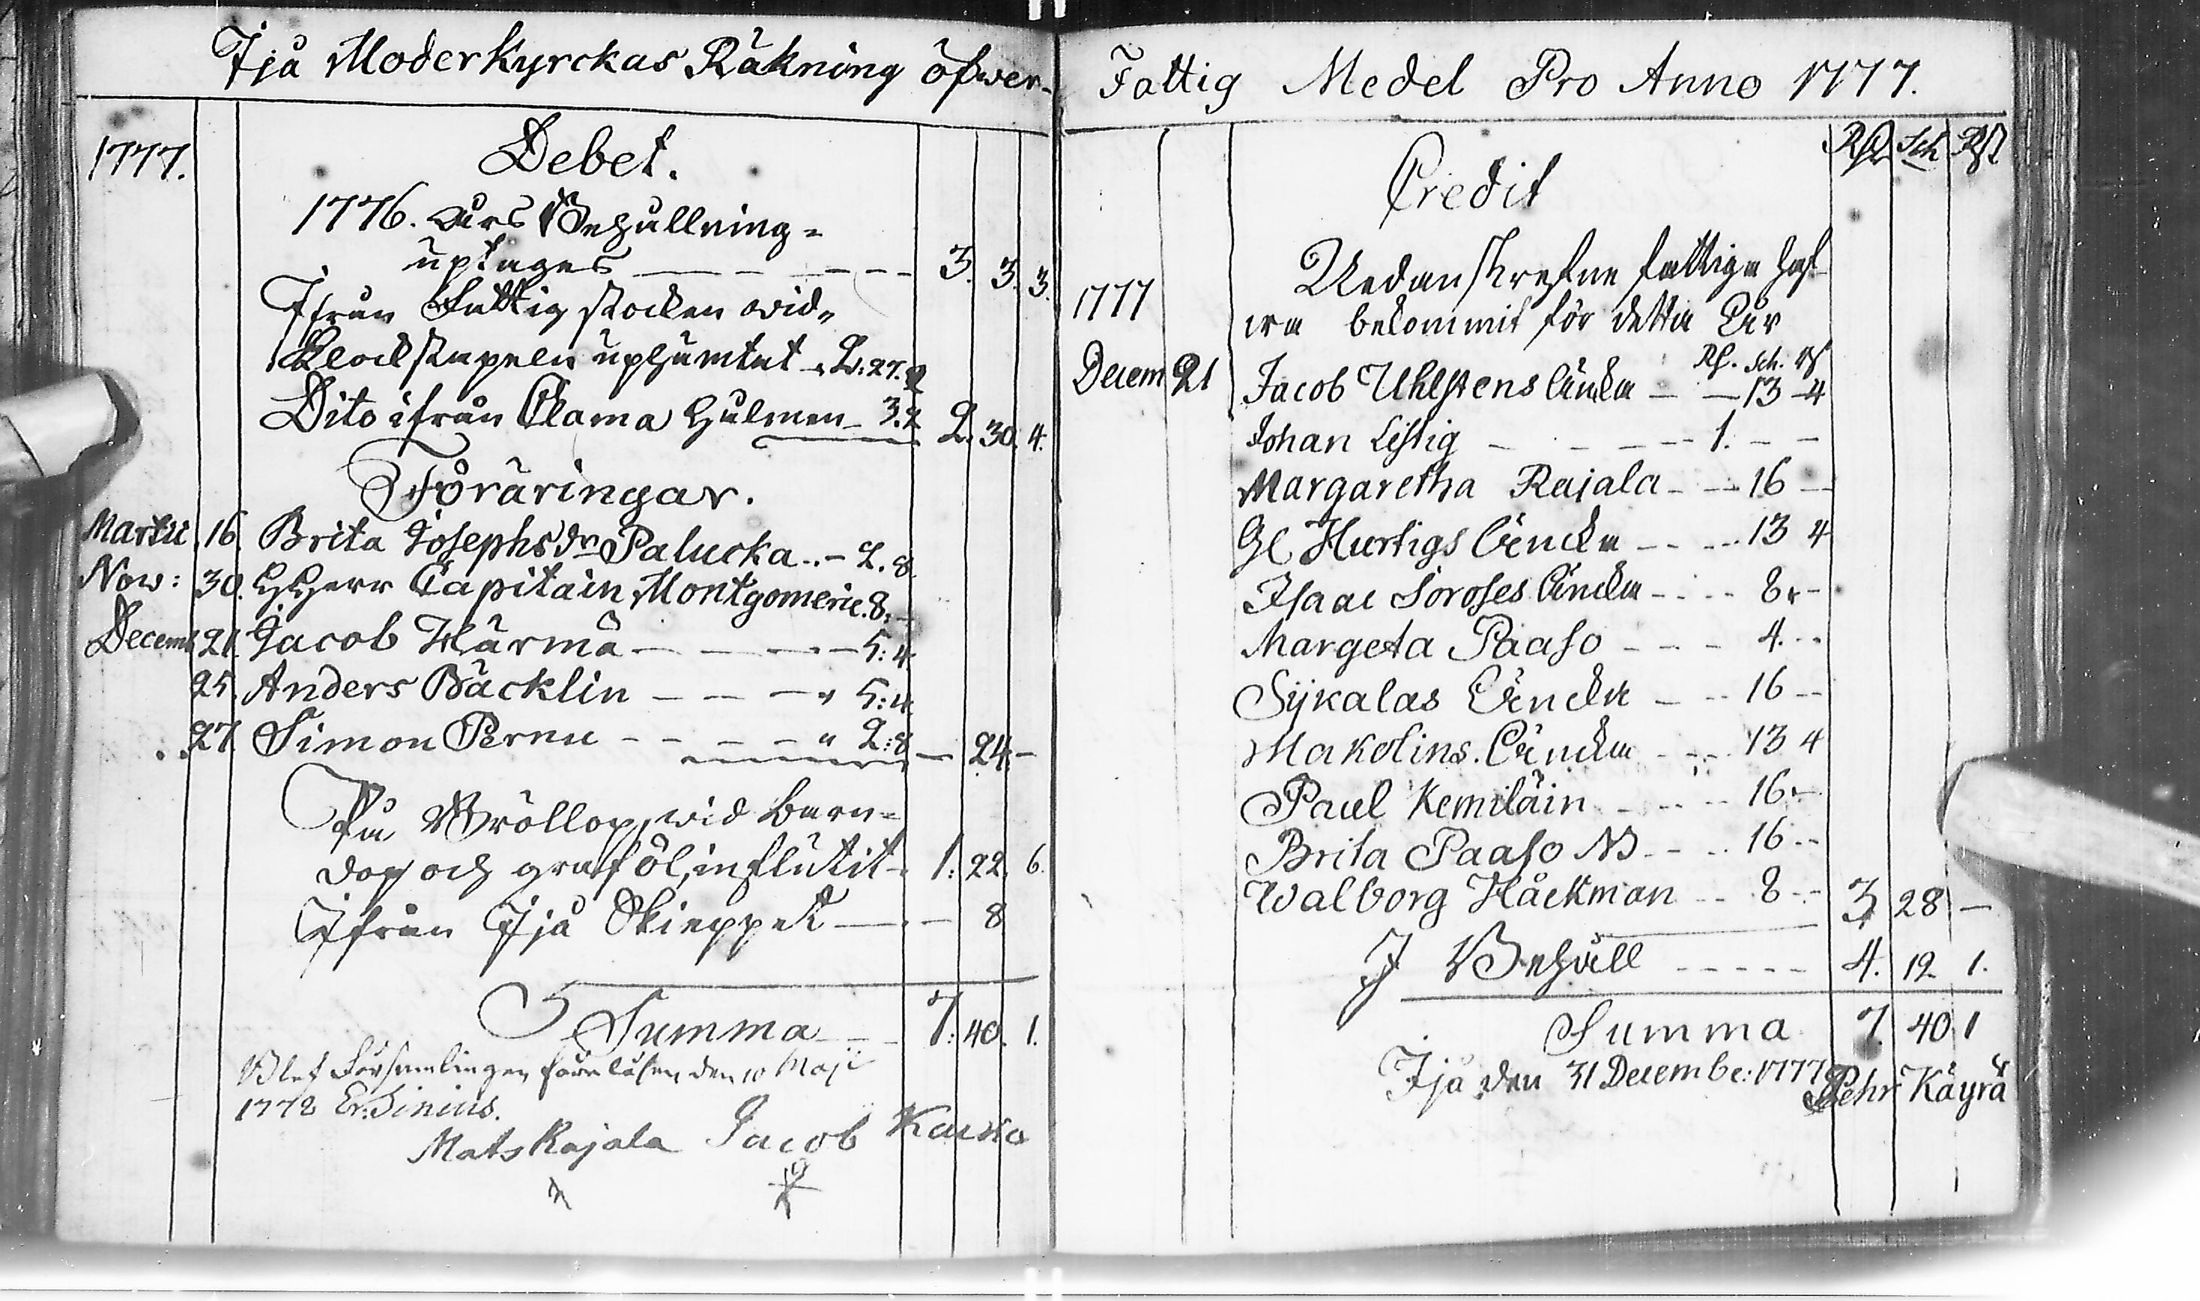 Ijå Moderkyrckas Räkning öfwer
1777. Debet.
1776. års Behållning
uptages 3. 3. 3.
Ifrån Fattig stocken wid
Klockstapeln uphämtat 2. 27. 2
Dito ifrån Olama Hulmen 3. 2 2. 30. 4.
Föräringar.
Martii 16 Brita Josephsdr Palucka 2. 8
Now: 30. HHerr Capitain Montgomerie 8. -
Decemb 21 Jacob Härmä 5: 4
25. Anders Bäcklin 5: 4
27 Simon Pernu 2: 8 - 24 -
På Bröllop, wid barn-
dop och graföl, influtit 1: 22. 6.
Ifrån Ijå Skieppet - 8
Summa 7: 40. 1.
Blef Församlingen föreläsen den 10 Maji
1778
Mats Rajala Jacob
Fattig Medel Pro Anno 1777.
Rd Sch Rst
Credit
1777 Nedanskrefne fattige haf-
wa bekommit för detta år
Rd. Sch. Rst
Decem 21 Jacob Uhlstens Encka - 13 4
Johan Listig 1. - -
Margaretha Rajala - 16 -
Gl Hurtigs Encka - 13 4
Isaac Soroses Encka 8 -
Margeta Paaso 4. -
Sijkalas Encka 16 -
Makolins Encka 13 4
Paul Kemiläin 16 -
Brita Paaso NB 16 -
Walborg Håckman 8 - 3 28 -
I Behåll 4. 19. 1.
Summa 7. 40 1
Ijå den 31 Decembr: 1777
Pehr Käyrä